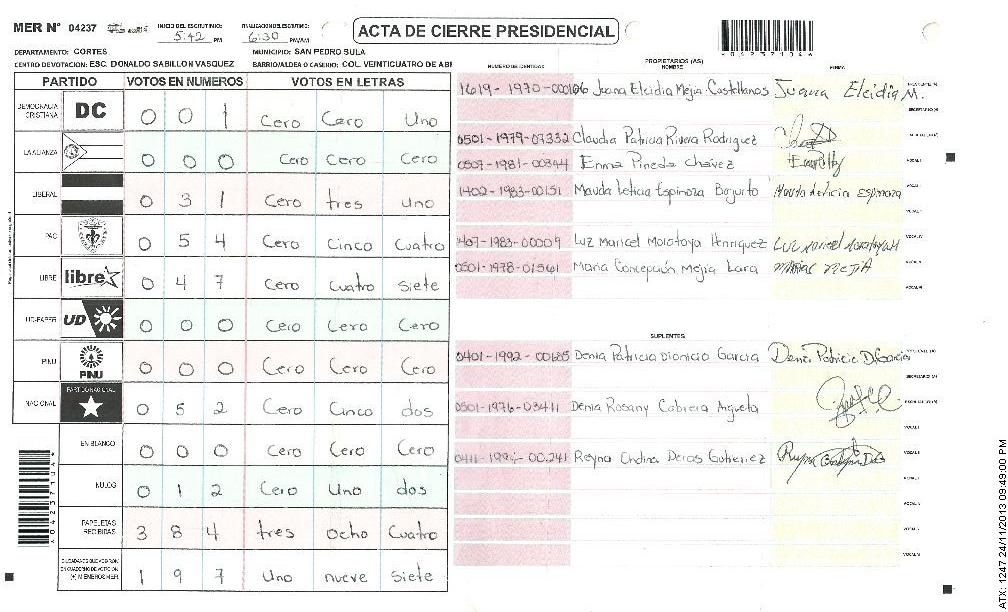 MER Nº 04237
INICIO DEL ESCRUTINIO: 5:42 PM
FINALIZACION DEL ESCRUTINIO: 6:30 PM/AM
ACTA DE CIERRE PRESIDENCIAL
DEPARTAMENTO: CORTES
MUNICIPIO: SAN PEDRO SULA
CENTRO DE VOTACION: ESC. DONALDO SABILLON VASQUEZ
BARRIO/ALDEA O CASERIO: COL. VEINTICUATRO DE ABI
PARTIDO VOTOS EN NUMEROS VOTOS EN LETRAS
DEMOCRACIA CRISTIANA DC 0 0 1 Cero Cero Uno
LA ALIANZA 0 0 0 Cero Cero Cero
LIBERAL 0 3 1 Cero tres uno
PAC 0 5 4 Cero Cinco Cuatro
LIBRE libre 0 4 7 Cero Cuatro siete
UD-FAPER UD 0 0 0 Cero Cero Cero
PINU PINU 0 0 0 Cero Cero Cero
NACIONAL PARTIDO NACIONAL 0 5 2 Cero Cinco dos
EN BLANCO 0 0 0 Cero Cero Cero
NULOS 0 1 2 Cero Uno dos
PAPELETAS RECIBIDAS 3 8 4 tres ocho Cuatro
(+) MIEMBROS MER 1 9 7 Uno nueve siete
PROPIETARIOS (AS)
NUMERO DE IDENTIDAD NOMBRE FIRMA
Juana Elcidia Mejia Castellanos Juana Elcidia M.
0501-1979-07332 Claudia Patricia Rivera Rodriguez
0501-1981-00344 Enma Pineda Chávez
1402-1983-00151 Mauda Leticia Espinoza
1407-1983-00009 Luz Maricel Morataya Henriquez
0501-1978-01561 Maria Concepción Mejia Lara
SUPLENTES
Denia Patricia Dionicio Garcia
0501-1976-03411 Denia Rosany Cabrera
Reyna Ondina Deras Gutierrez
ATX: 1247 24/11/2013 09:49:00 PM